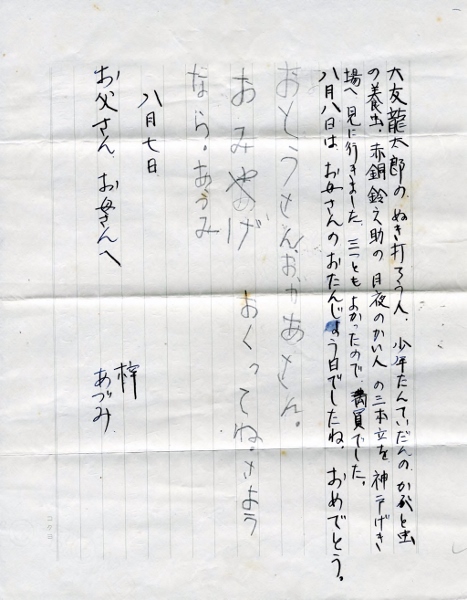 大友龍太郎の、ぬき打ろう人、少年たんていだんの かぶと虫
の養虫、赤銅鈴之助の 月夜のかい人 の三本立を 神戸げき
場へ 見に行きました。三つともよかったので、満員でした。
八月八日は、お母さんのおたんじょう日でしたね。おめでとう。
おとうさん、おかあさん。
おみやげ おくってね。さよう
なら。あづみ
八月七日
お父さん、お母さんへ
梓
あづみ
コクヨ